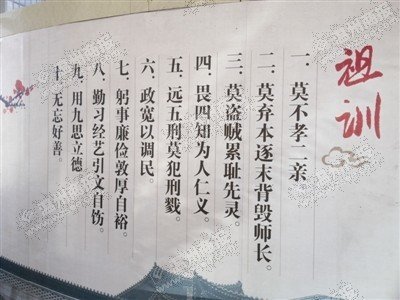 祖训
一. 莫不孝二亲
二. 莫弃本逐末背毁师长。
三. 莫盗贼累耻先灵。
四. 畏四知为人仁义。
五. 远五刑莫犯刑戮。
六. 政宽以调民。
七. 躬事廉俭敦厚自裕。
八. 勤习经艺引文自饬。
九. 用九思立德
十. 无忘好善。